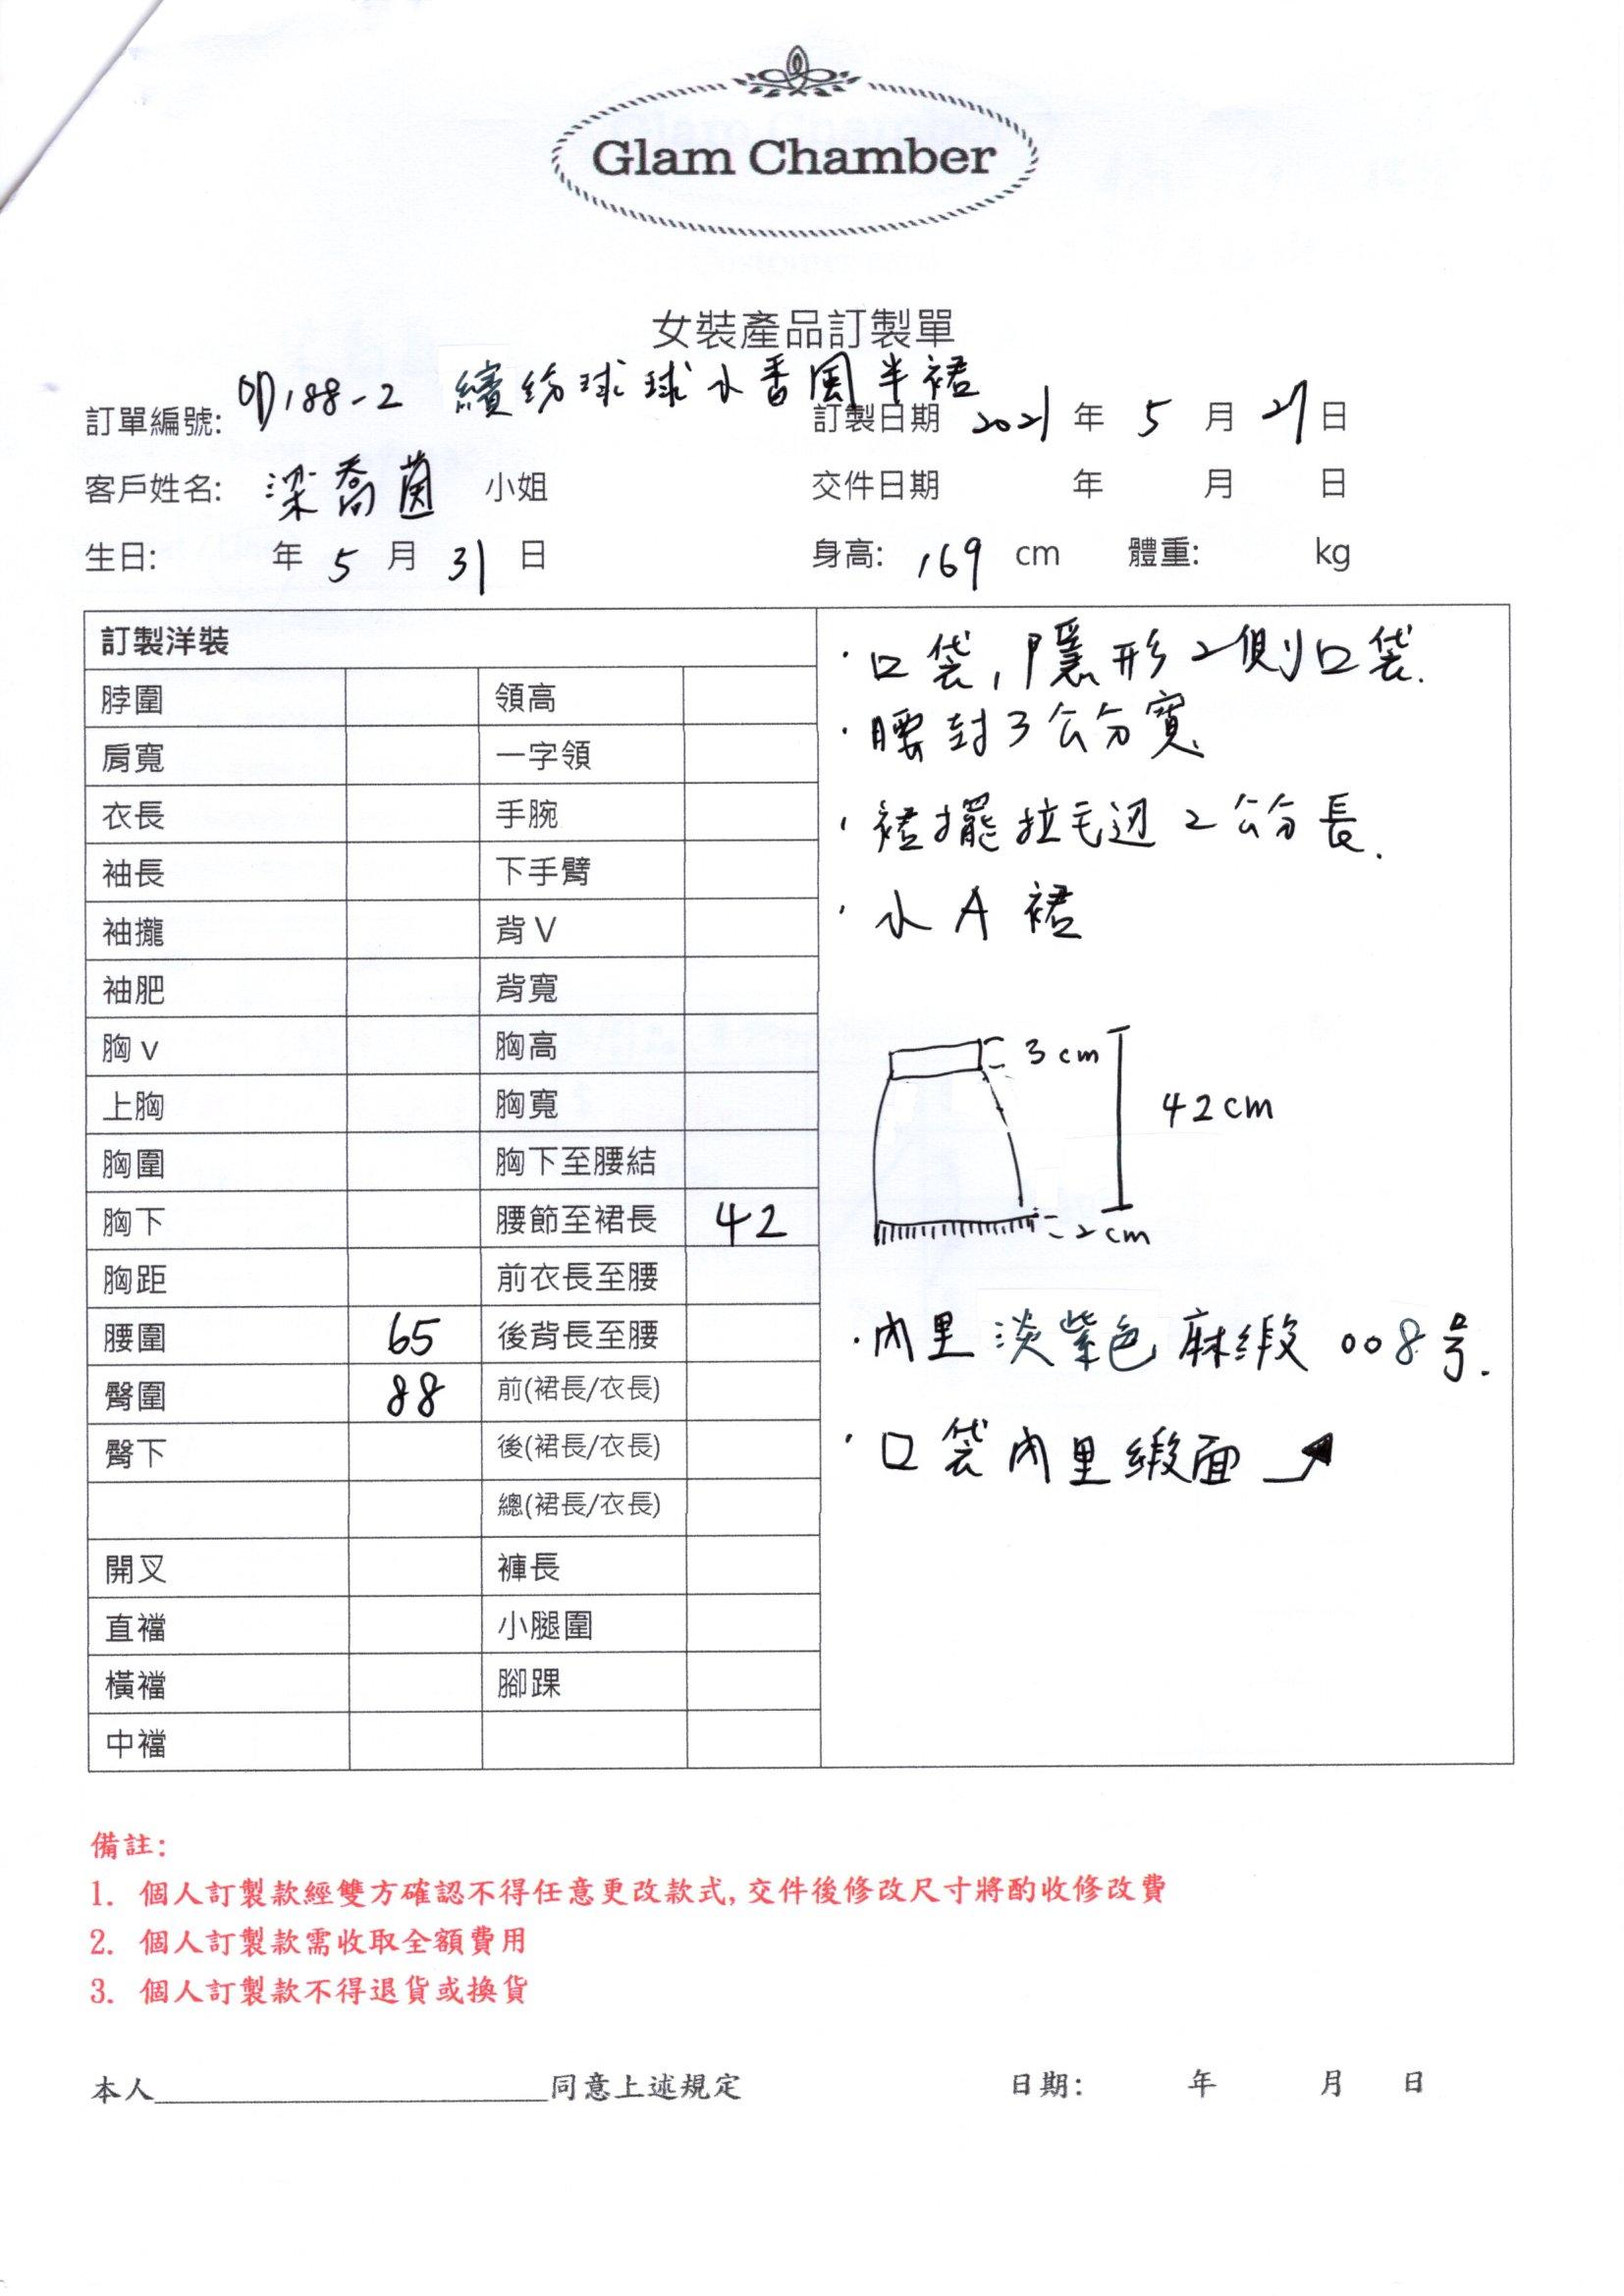 Glam Chamber
女裝產品訂製單
訂單編號: OD188-2 繽紛球球小香風半裙 訂製日期 2021 年 5 月 21 日
客戶姓名: 梁喬茵 小姐 交件日期 年 月 日
生日: 年 5 月 31 日 身高: 169 cm 體重: kg
訂製洋裝
脖圍 領高
肩寬 一字領
衣長 手腕
袖長 下手臂
袖攏 背V
袖肥 背寬
胸v 胸高
上胸 胸寬
胸圍 胸下至腰結
胸下 腰節至裙長 42
胸距 前衣長至腰
腰圍 65 後背長至腰
臀圍 88 前(裙長/衣長)
臀下 後(裙長/衣長)
總(裙長/衣長)
開叉 褲長
直襠 小腿圍
橫襠 腳踝
中襠
·口袋,隱形2側口袋.
·腰封3公分寬
·裙擺拉毛边2公分長.
·小A裙
3cm
42cm
2cm
·內里淡紫色麻緞008号.
·口袋內里緞面
備註:
1. 個人訂製款經雙方確認不得任意更改款式,交件後修改尺寸將酌收修改費
2. 個人訂製款需收取全額費用
3. 個人訂製款不得退貨或換貨
本人__________同意上述規定 日期: 年 月 日